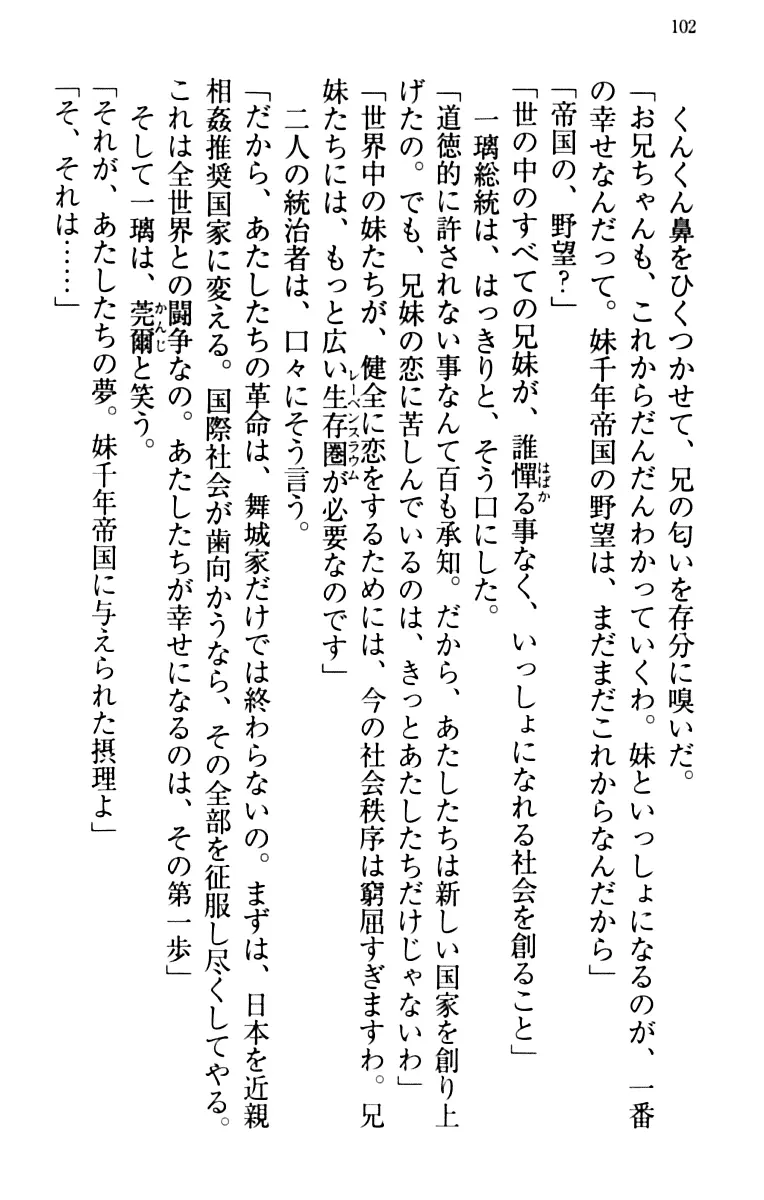 102
くんくん鼻をひくつかせて、兄の匂いを存分に嗅いだ。
「お兄ちゃんも、これからだんだんわかっていくわ。妹といっしょになるのが、一番
の幸せなんだって。妹千年帝国の野望は、まだまだこれからなんだから」
「帝国の、野望？」
「世の中のすべての兄妹が、誰憚る事なく、いっしょになれる社会を創ること」
はばか
一璃総統は、はっきりと、そう口にした。
「道徳的に許されない事なんて百も承知。だから、あたしたちは新しい国家を創り上
げたの。でも、兄妹の恋に苦しんでいるのは、きっとあたしたちだけじゃないわ」
「世界中の妹たちが、健全に恋をするためには、今の社会秩序は窮屈すぎますわ。兄
妹たちには、もっと広い生存圏が必要なのです」
レーベンスラウム
二人の統治者は、口々にそう言う。
「だから、あたしたちの革命は、舞城家だけでは終わらないの。まずは、日本を近親
相姦推奨国家に変える。国際社会が歯向かうなら、その全部を征服し尽くしてやる。
これは全世界との闘争なの。あたしたちが幸せになるのは、その第一歩」
そして一璃は、莞爾と笑う。
かんじ
「それが、あたしたちの夢。妹千年帝国に与えられた摂理よ」
「そ、それは……」